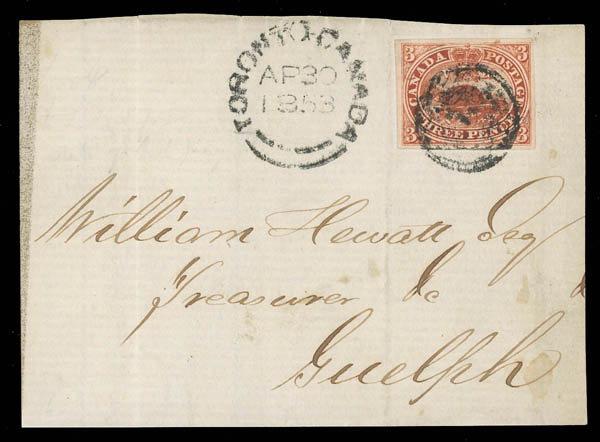 TORONTO·CANADA
AP30
1853
3 3
CANADA POSTAGE
THREE PENCE
3 3
William Hewatt Esq
Treasurer &c &
Guelph